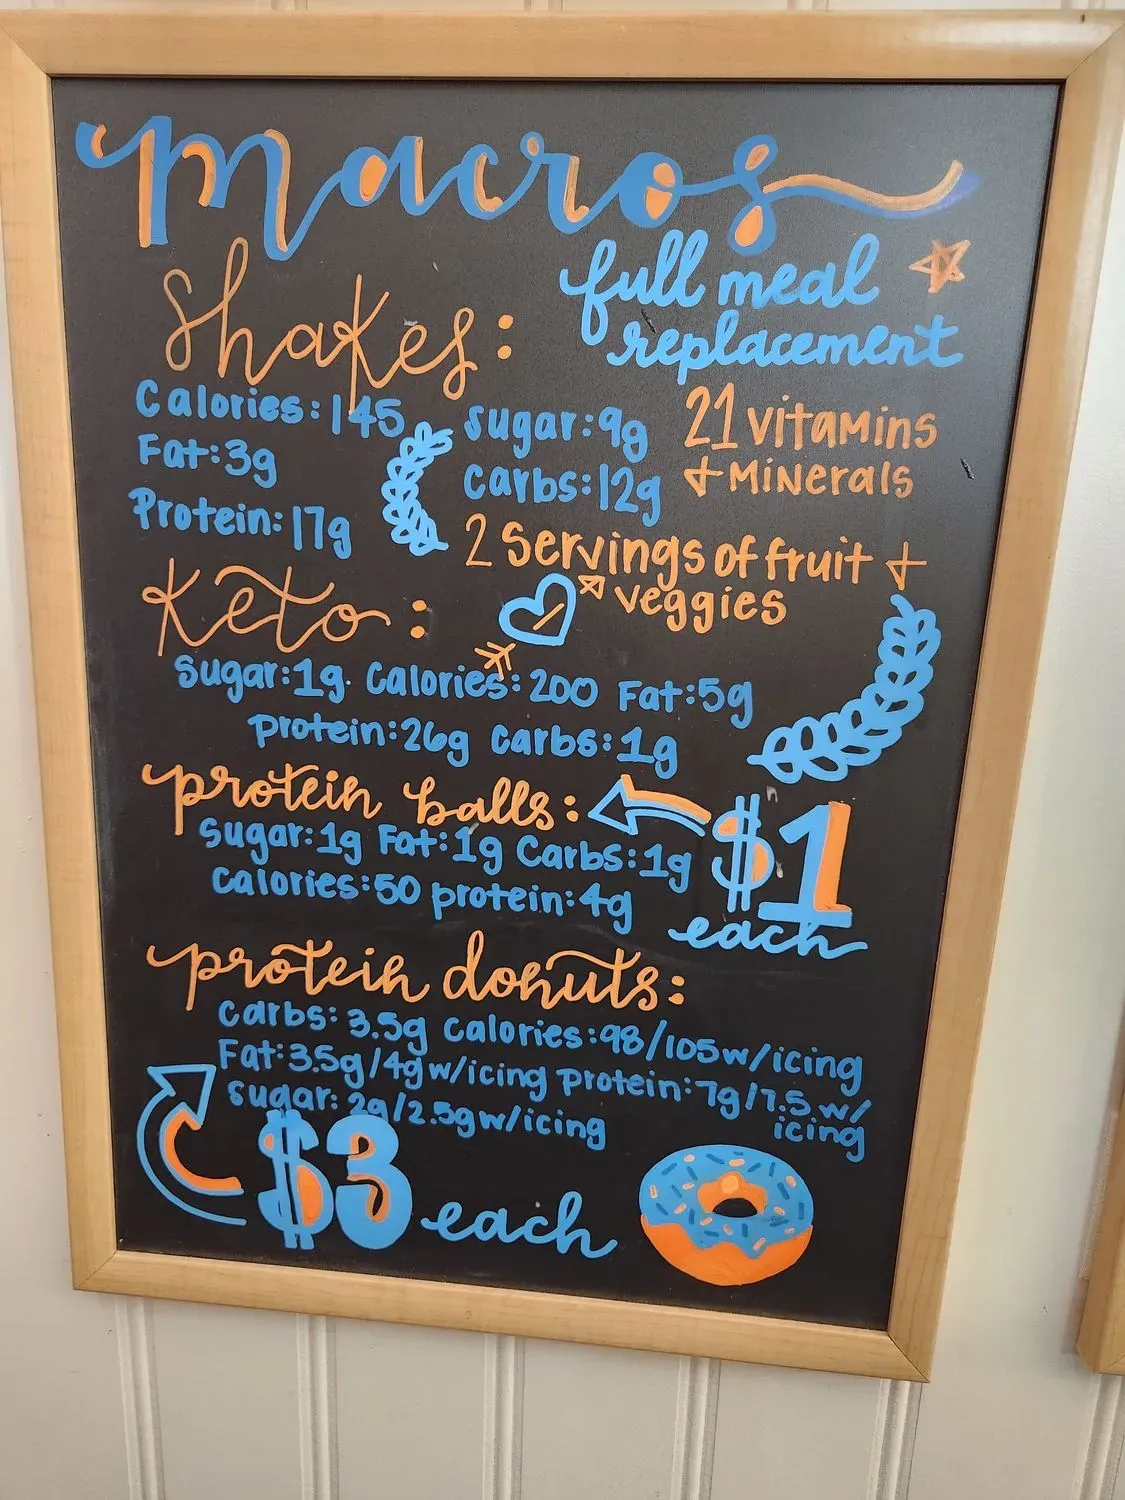 macros
shakes:
full meal
replacement
Calories: 145
Fat: 3g
Protein: 17g
sugar: 9g
carbs: 12g
21 vitamins
+ Minerals
2 Servings of fruit +
veggies
Keto:
sugar: 1g. Calories: 200 Fat: 5g
protein: 26g carbs: 1g
protein balls:
sugar: 1g Fat: 1g Carbs: 1g
calories: 50 protein: 4g
$1
each
protein donuts:
carbs: 3.5g calories: 98/105 w/icing
Fat: 3.5g/4g w/icing protein: 7g/7.5 w/
icing
sugar: 2g/2.5g w/icing
$3 each